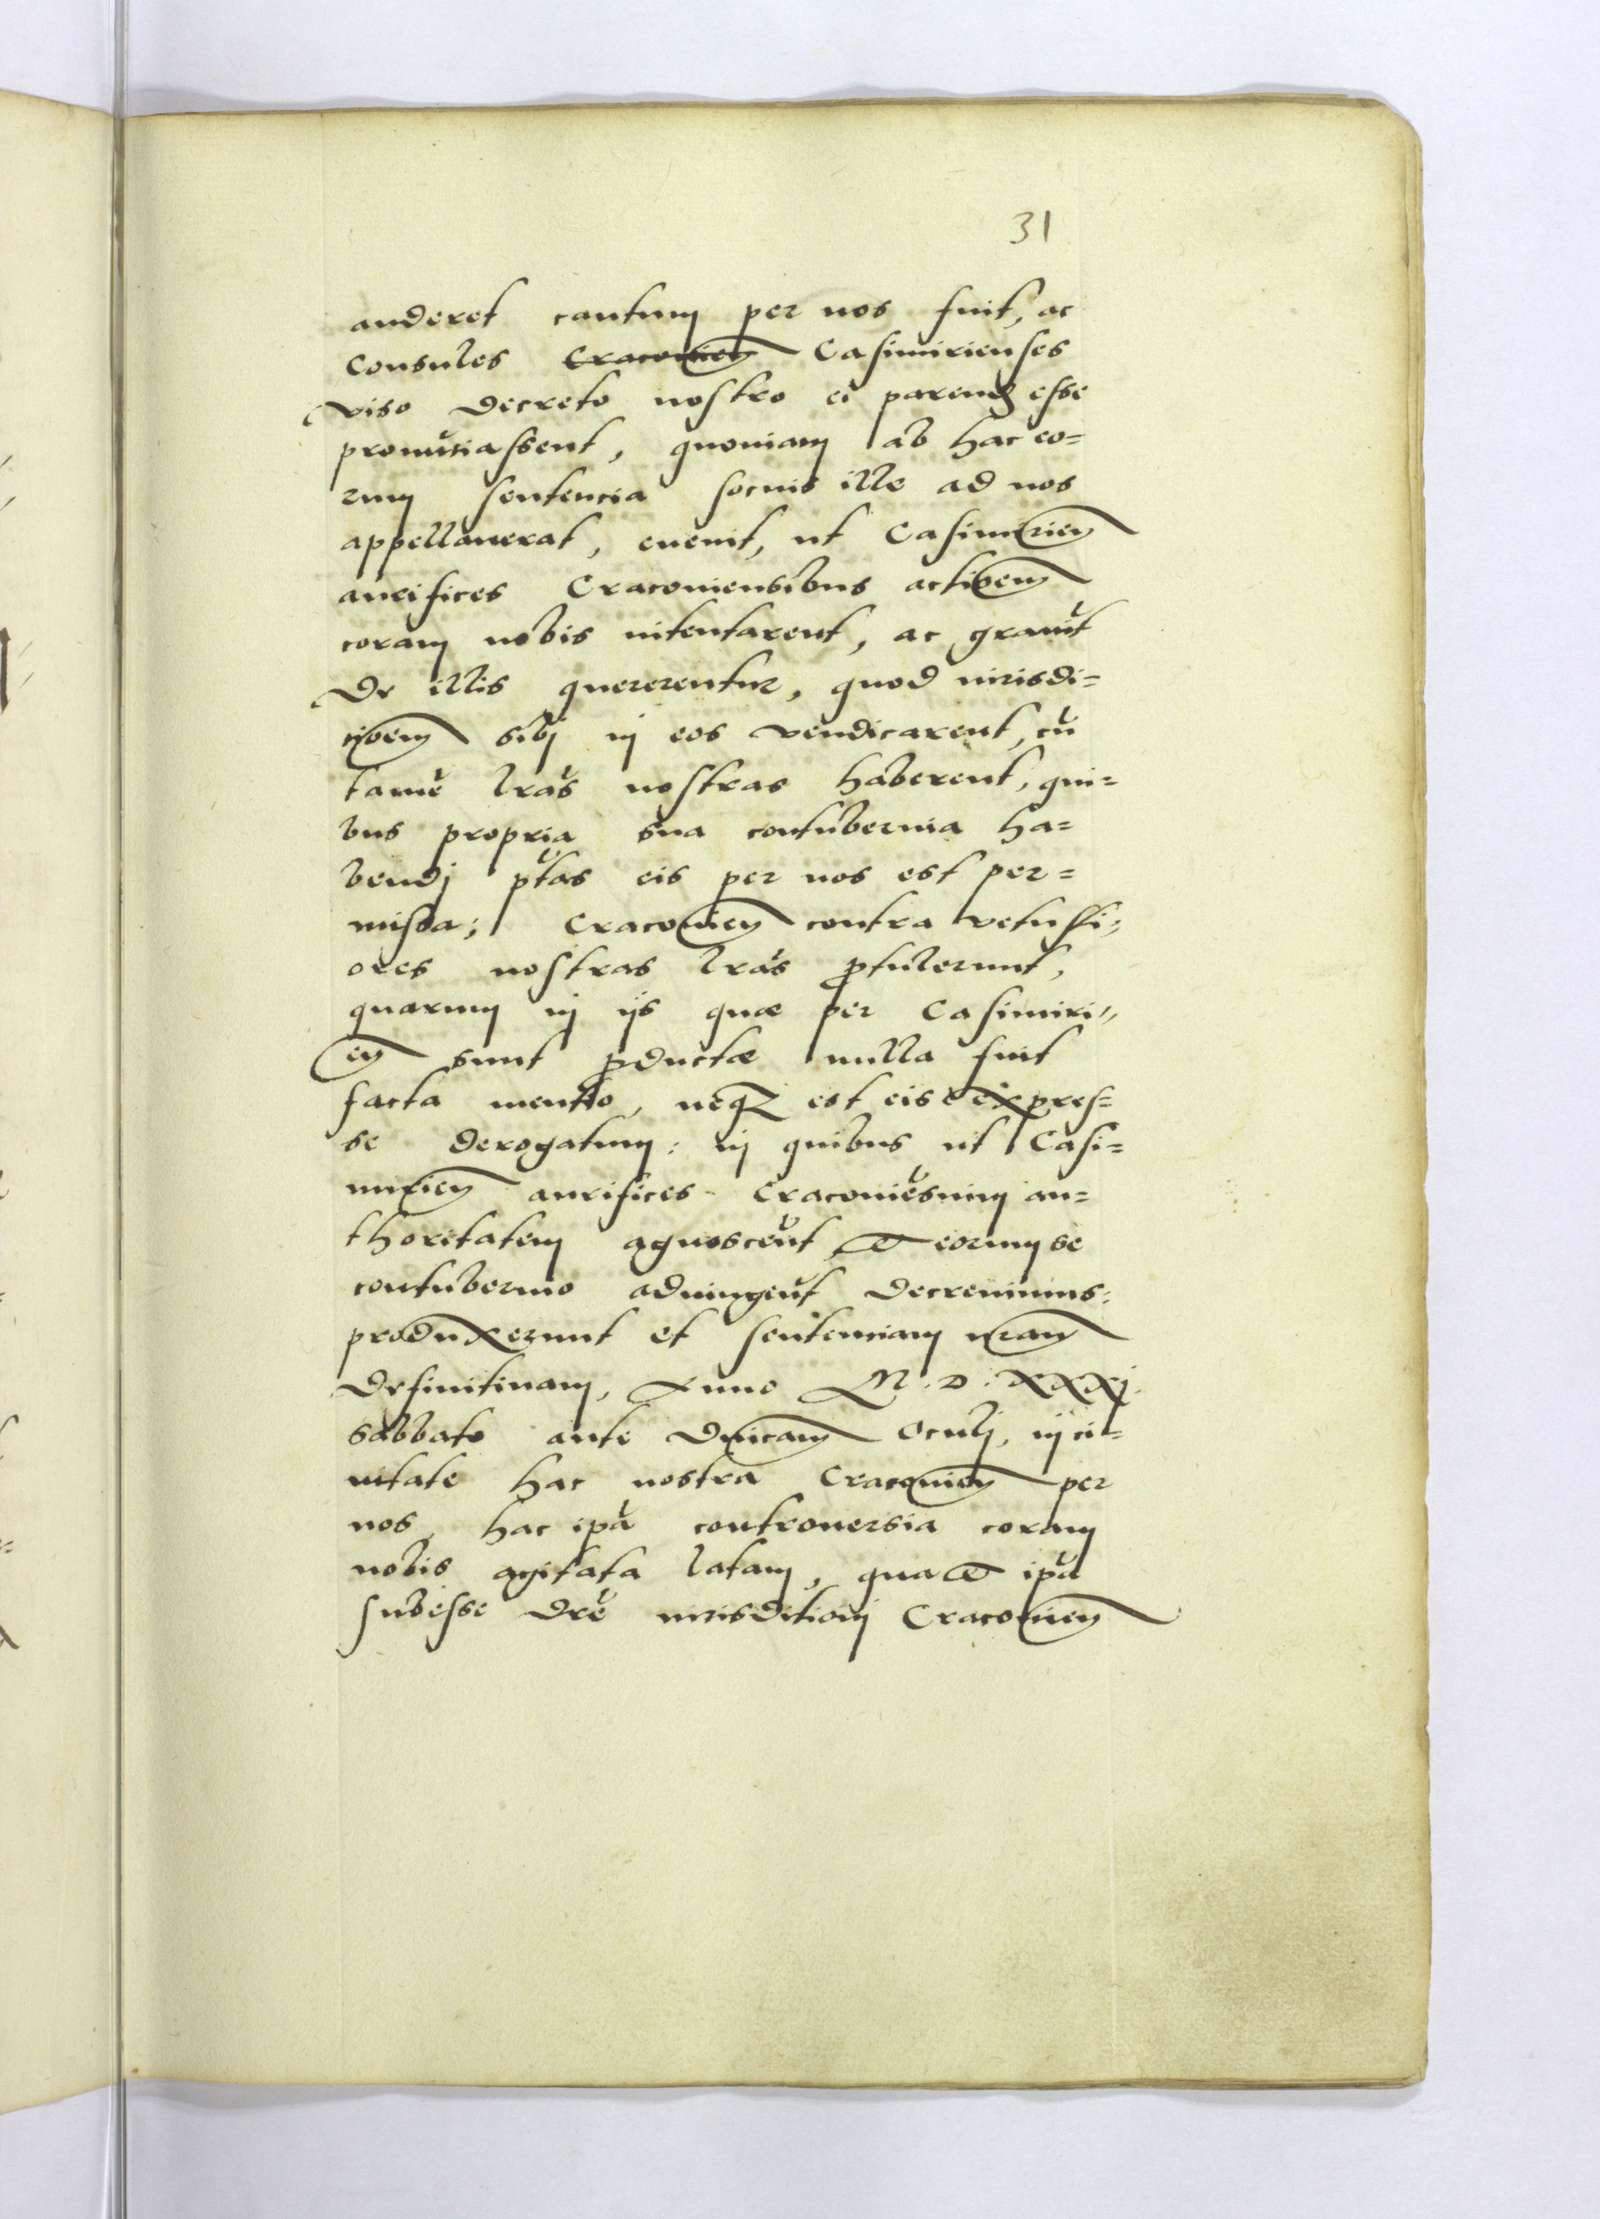 31
auderet cautum per nos fuit, ac
Consules Cracovien̄ Casimirienses
viso decreto nostro ei parendū esse
pronūtiassent, quoniam ab hac eo=
rum sententia socius ille ad nos
appellauerat, euenit, ut Casimirien̄
aurifices Cracouiensibus actioēm
coram nobis intentarent, ac grauit̃
de illis quererentur, quod iurisdi=
ctioēm sibj in eos vendicarent, cū
tamē lrãs nostras haberent, qui=
bus propria sua contubernia ha=
bendj ptãs eis per nos est per=
missa; Cracouien̄ contra vetusti=
ores nostras lrãs ꝓtulerunt,
quarum in ijs quæ per Casimiri=
en̄ sunt ꝓductæ nulla fuit
facta mentio, neqꝫ est eis expres=
se derogatum: in quibus ut Casi=
mirien̄ aurifices Cracouiēsium au=
thoritatem agnoscēt, et eorum se
contubernio adiungēt decreuimus:
produxerunt et sententiam nrãm
definitiuam, Anno M.D.XXXj.
Sabbato ante Dnicam̄ Oculj, in ci=
uitate hac nostra Cracouien̄ per
nos, hac ipā controuersia coram
nobis agitata latam, qua et ipā
subesse drē iurisditionj Cracouien̄